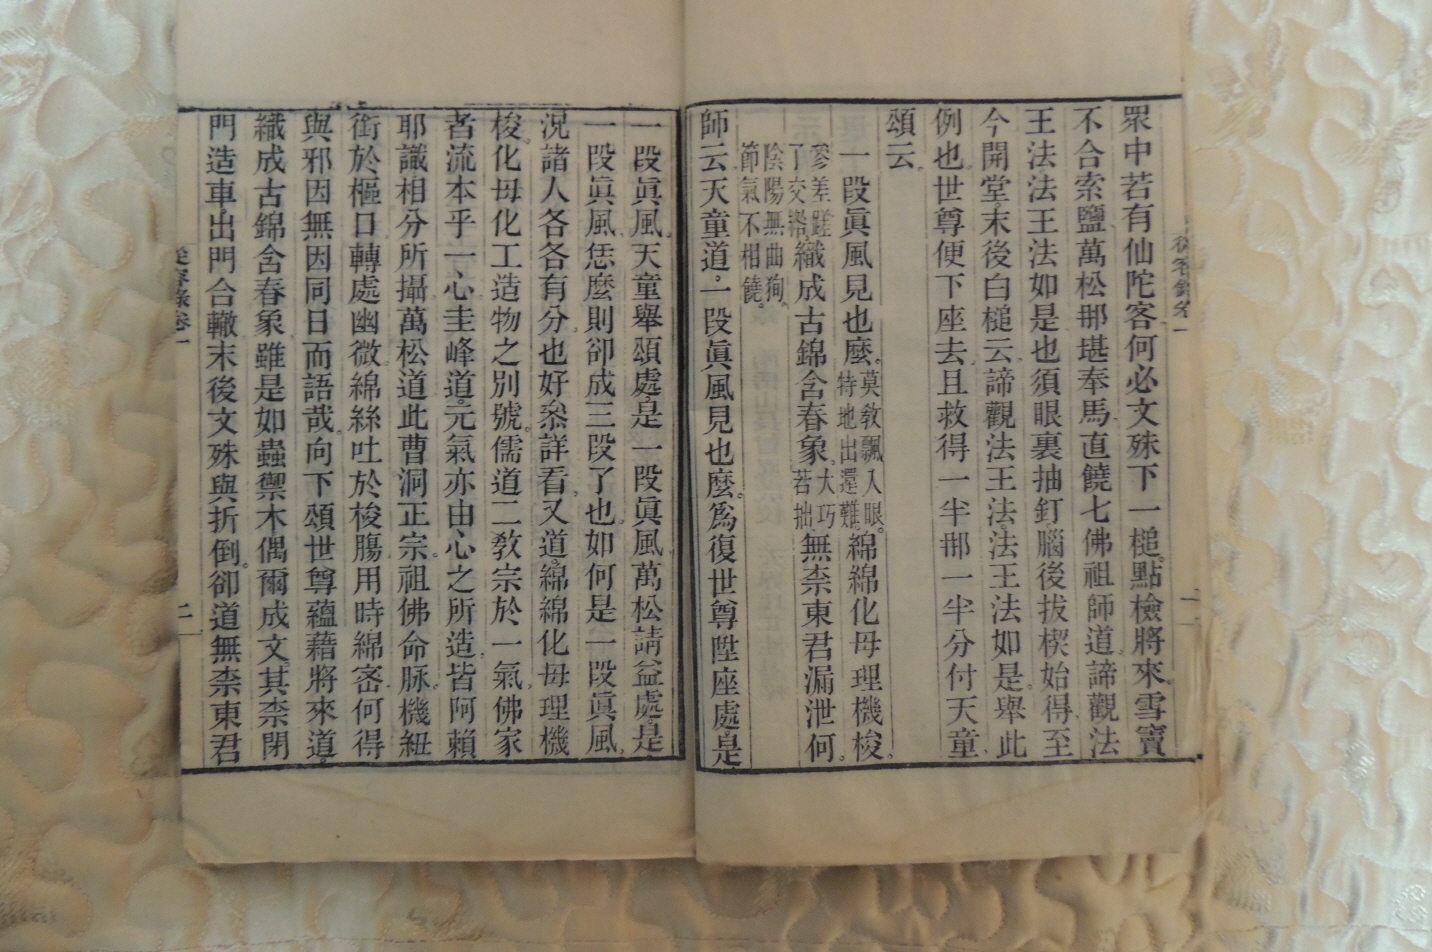 眾中若有仙陀客何必文殊下一槌。點檢將來。雪竇
不合索鹽萬松那堪奉馬直饒七佛祖師道。諦觀法
王法法王法如是也須眼裏抽釘腦後拔楔始得至
今開堂。末後白槌云。諦觀法王法。法王法如是。舉此
例也。世尊便下座去。且救得一半那一半分付天童
頌云。
一段眞風見也麼。莫教飄入眼。特地出還難。綿綿化母理機梭。
參差蹉了交輥。織成古錦含春象。大巧若拙。無柰東君漏泄何。
陰陽無曲狥。節氣不相饒。
師云。天童道。一段眞風見也麼。爲復世尊陞座處。是
一段眞風。天童舉頌處。是一段眞風。萬松請益處。是
一段眞風。恁麼則卻成三段了也。如何是一段眞風。
況諸人各各有分。也好叅詳看。又道。綿綿化母理機
梭。化母化工造物之別號。儒道二教宗於一氣。佛家
者流本乎一心。圭峰道。元氣亦由心之所造。皆阿賴
耶識相分所攝。萬松道此曹洞正宗。祖佛命脉。機紐
銜於樞口轉處幽微。綿絲吐於梭腸用時綿密。何得
與邪因無因同日而語哉。向下頌世尊蘊藉將來道
織成古錦含春象雖是如蟲禦木偶爾成文。其柰閉
門造車出門合轍末後文殊與折倒。卻道無柰東君
從容錄卷一
二